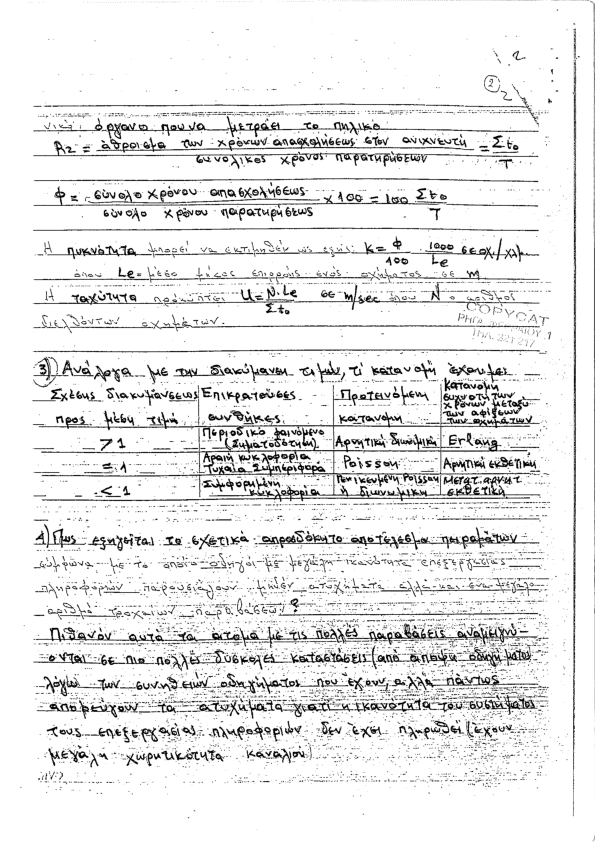 2
2
2
όργανο που να μετράει το πηλίκο
R2 = άθροισμα των χρόνων απασχολήσεως στον ανιχνευτή / συνολικός χρόνος παρατηρήσεων = Σto / T
Φ = σύνολο χρόνου απασχολήσεως / σύνολο χρόνου παρατηρήσεως × 100 = 100 Σto / T
Η πυκνότητα μπορεί να εκτιμηθεί ως εξής: K = Φ/100 · 1000/Le σε οχ./χλμ
όπου Le = μέσο μήκος επιρροής ενός οχήματος σε m
Η ταχύτητα προκύπτει U = N·Le / Σto σε m/sec όπου N ο αριθμός
διελθόντων οχημάτων.
COPYCAT
ΤΗΛ. 221-217
3) Ανάλογα με την διακύμανση τιμών, τί κατανομή έχουμε;
Σχέσης διακυμάνσεως προς μέση τιμή | Επικρατούσες συνθήκες | Προτεινόμενη κατανομή | Κατανομή συχνοτήτων χρόνων μεταξύ των αφίξεων των οχημάτων
>1 | Περιοδικό φαινόμενο (Σηματοδότηση) | Αρνητική διωνυμική | Erlang
= 1 | Αραιή κυκλοφορία Τυχαία Συμπεριφορά | Poisson | Αρνητική εκθετική
< 1 | Συμφορημένη κυκλοφορία | Γενικευμένη Poisson ή διωνυμική | Μετατ. αρνητ. εκθετική
4) Πως εξηγείται το σχετικά απροσδόκητο αποτέλεσμα πειραμάτων
σύμφωνα με το οποίο οδηγοί με μεγάλη ικανότητα επεξεργασίας
πληροφοριών παρουσιάζουν μηδέν ατυχήματα αλλά και ένα μεγάλο
αριθμό τροχαίων παραβάσεων;
Πιθανόν αυτά τα άτομα με τις πολλές παραβάσεις αναμειγνύ-
ονται σε πιο πολλές δύσκολες καταστάσεις (από άποψη οδηγήματος)
λόγω των συνηθειών οδηγήματος που έχουν, αλλά πάντως
αποφεύγουν τα ατυχήματα γιατί η ικανότητα του συστήματος
τους επεξεργασίας πληροφοριών δεν έχει πληρωθεί (έχουν
μεγάλη χωρητικότητα καναλιού)